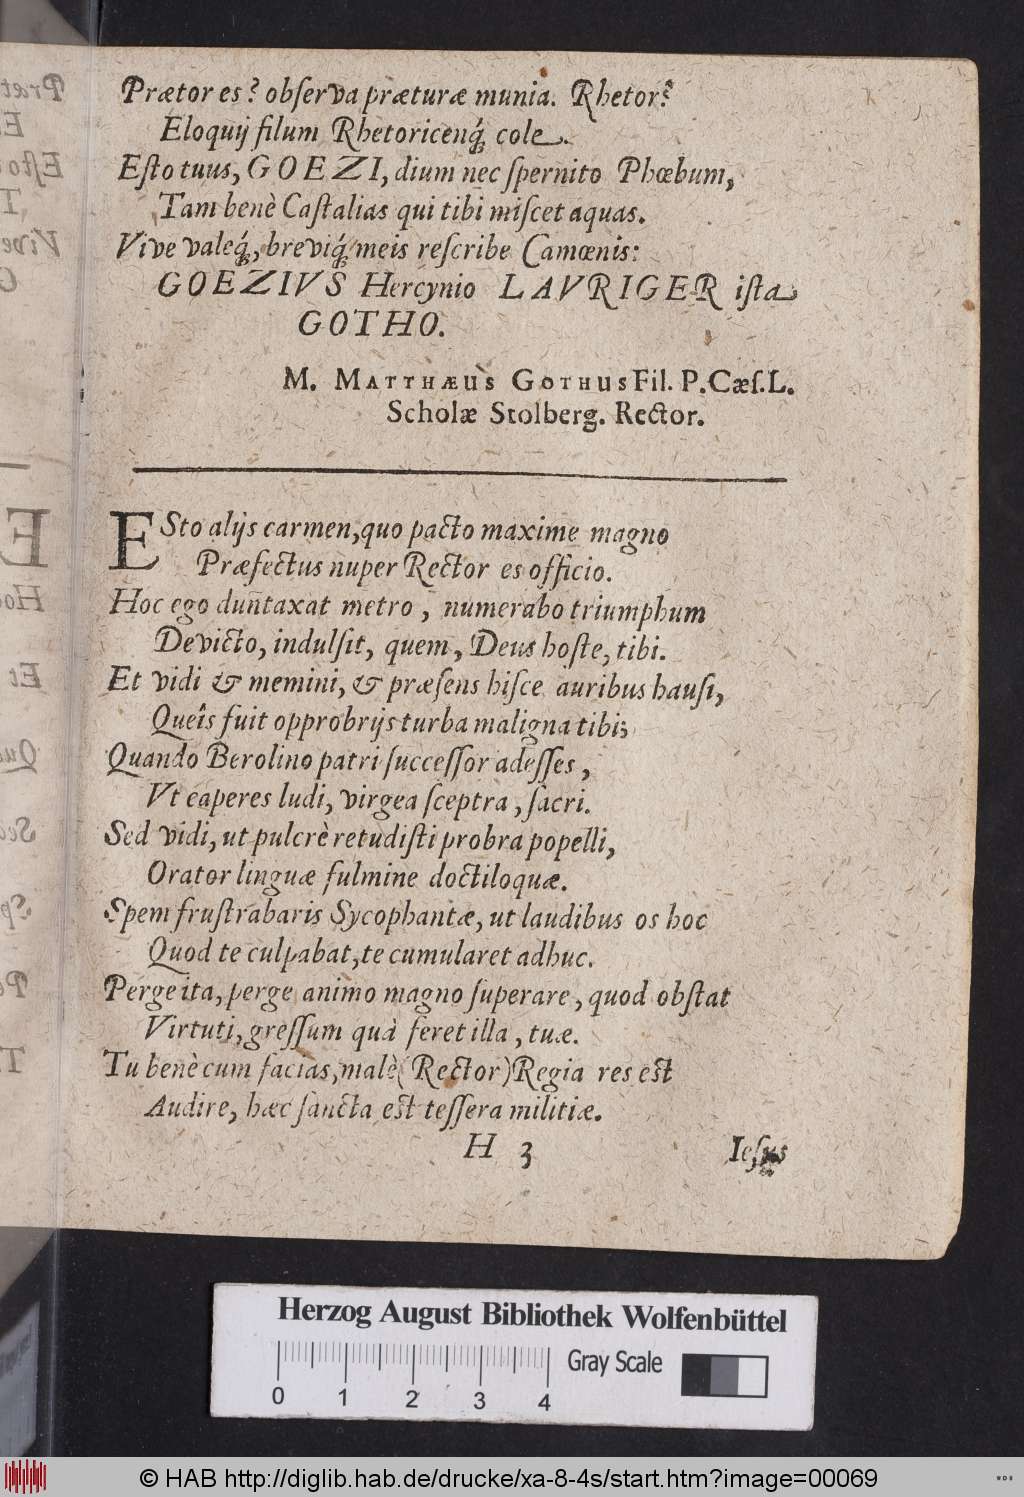 Prætor es? obſerva præturæ munia. Rhetor?
Eloquij filum Rhetoricenq́; cole.
Eſto tuus, GOEZI, dium nec ſpernito Phœbum,
Tam benè Caſtalias qui tibi miſcet aquas.
Vive valeq́;, breviq́; meis reſcribe Camœnis:
GOEZIVS Hercynio LAVRIGER iſta
GOTHO.
M. MATTHÆUS GOTHUS Fil. P. Cæſ. L.
Scholæ Stolberg. Rector.
ESto alijs carmen, quo pacto maxime magno
Præfectus nuper Rector es officio.
Hoc ego dun̄taxat metro, numerabo triumphum
Devicto, indulſit, quem, Deus hoſte, tibi.
Et vidi & memini, & præſens hiſce auribus hauſi,
Queîs fuit opprobrijs turba maligna tibi;
Quando Berolino patri ſucceſſor adeſſes,
Vt caperes ludi, virgea ſceptra, ſacri.
Sed vidi, ut pulcrè retudiſti probra popelli,
Orator linguæ fulmine doctiloquæ.
Spem fruſtrabaris Sycophantæ, ut laudibus os hoc
Quod te culpabat, te cumularet adhuc.
Perge ita, perge animo magno ſuperare, quod obſtat
Virtuti, greſſum quà feret illa, tuæ.
Tu benè cum facias, malè (Rector) Regia res eſt
Audire, hæc ſancta eſt teſſera militiæ.
H 3
Ieſus
Herzog August Bibliothek Wolfenbüttel
Gray Scale
0 1 2 3 4
© HAB http://diglib.hab.de/drucke/xa-8-4s/start.htm?image=00069